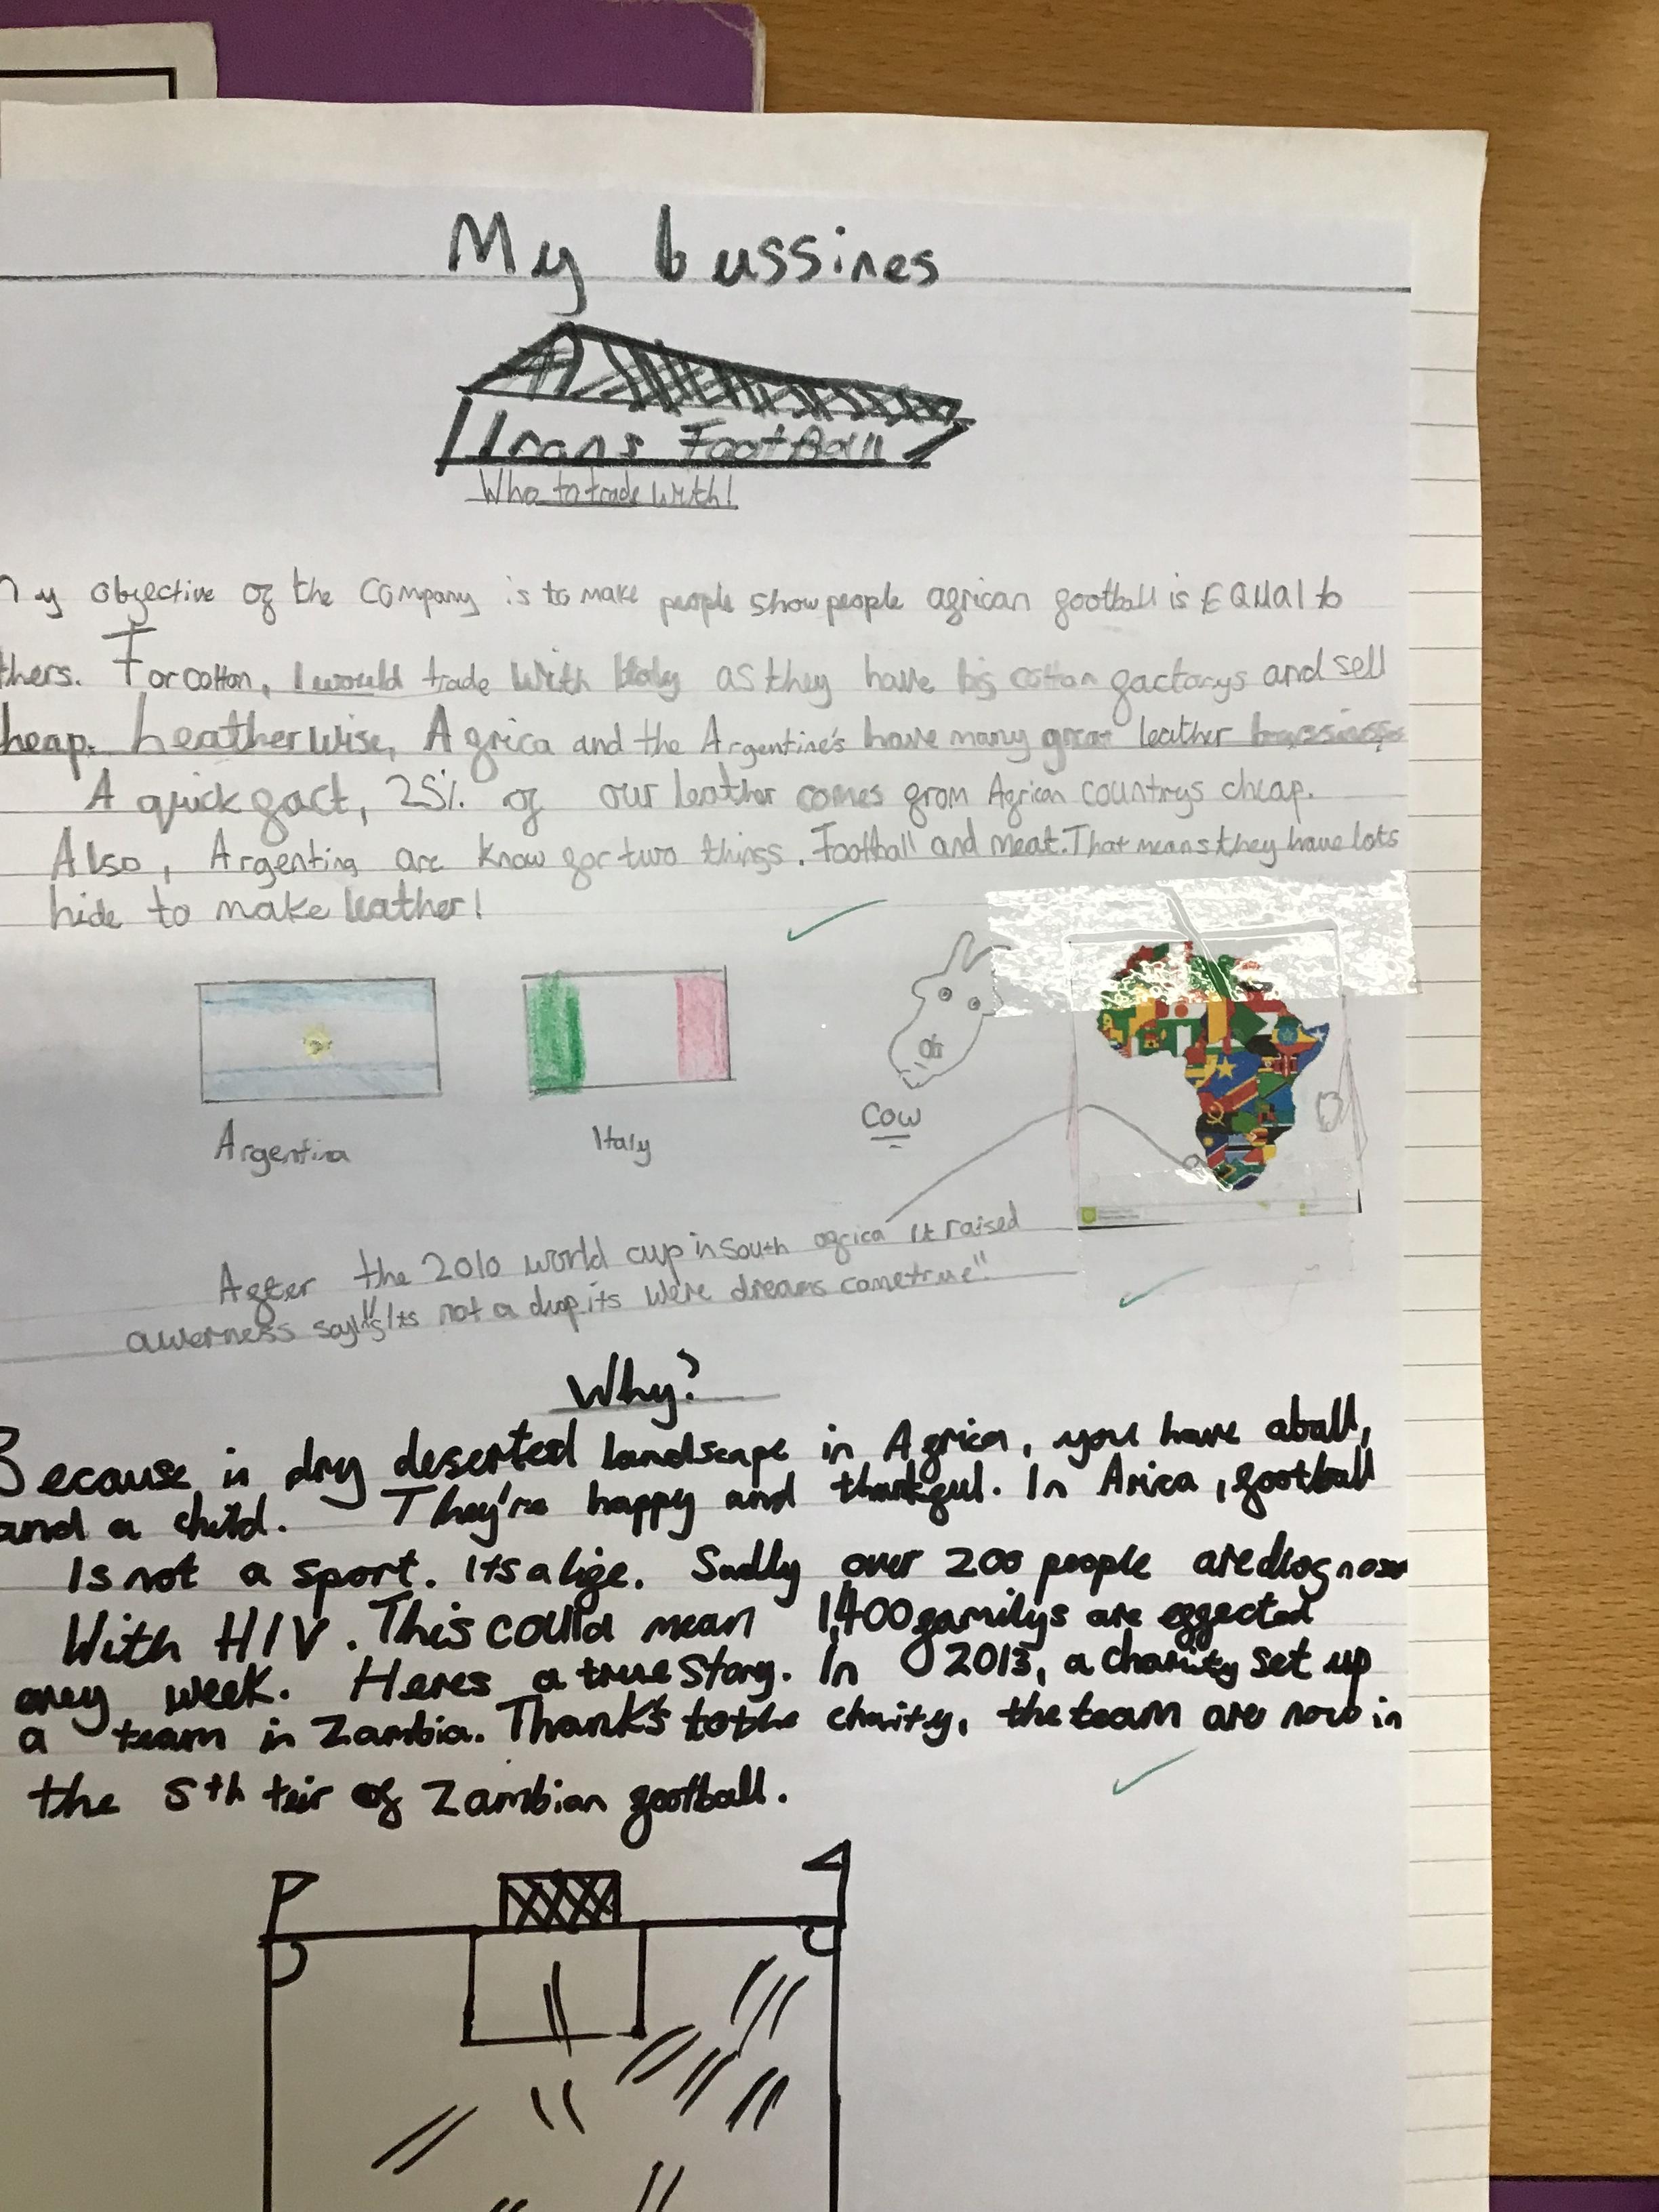 My bussines
Trans FootBall
Who to trade with!
My objective of the company is to make people show people african football is EQUAL to
thers. For cotton, I would trade with Italy as they have big cotton factorys and sell
heap. Leatherwise, Africa and the Argentine's have many great leather bussiness
A quick fact, 25% of our leather comes from African countrys cheap.
Also, Argentina are know for two things. Football and meat. That means they have lots
hide to make leather!
Argentina
Italy
Cow
After the 2010 world cup in south africa it raised
awerness saying "Its not a dup its were dreams come true".
Why?
Because in dry deserted landscape in Africa, you have a ball,
and a child. They're happy and thankful. In Arica, football
Is not a sport. Its a life. Sadly over 200 people are diagnose
With HIV. This could mean 1,400 familys are effected
every week. Heres a true story. In 2013, a charity set up
a team in Zambia. Thanks to the charity, the team are now in
the 5th teir of Zambian football.